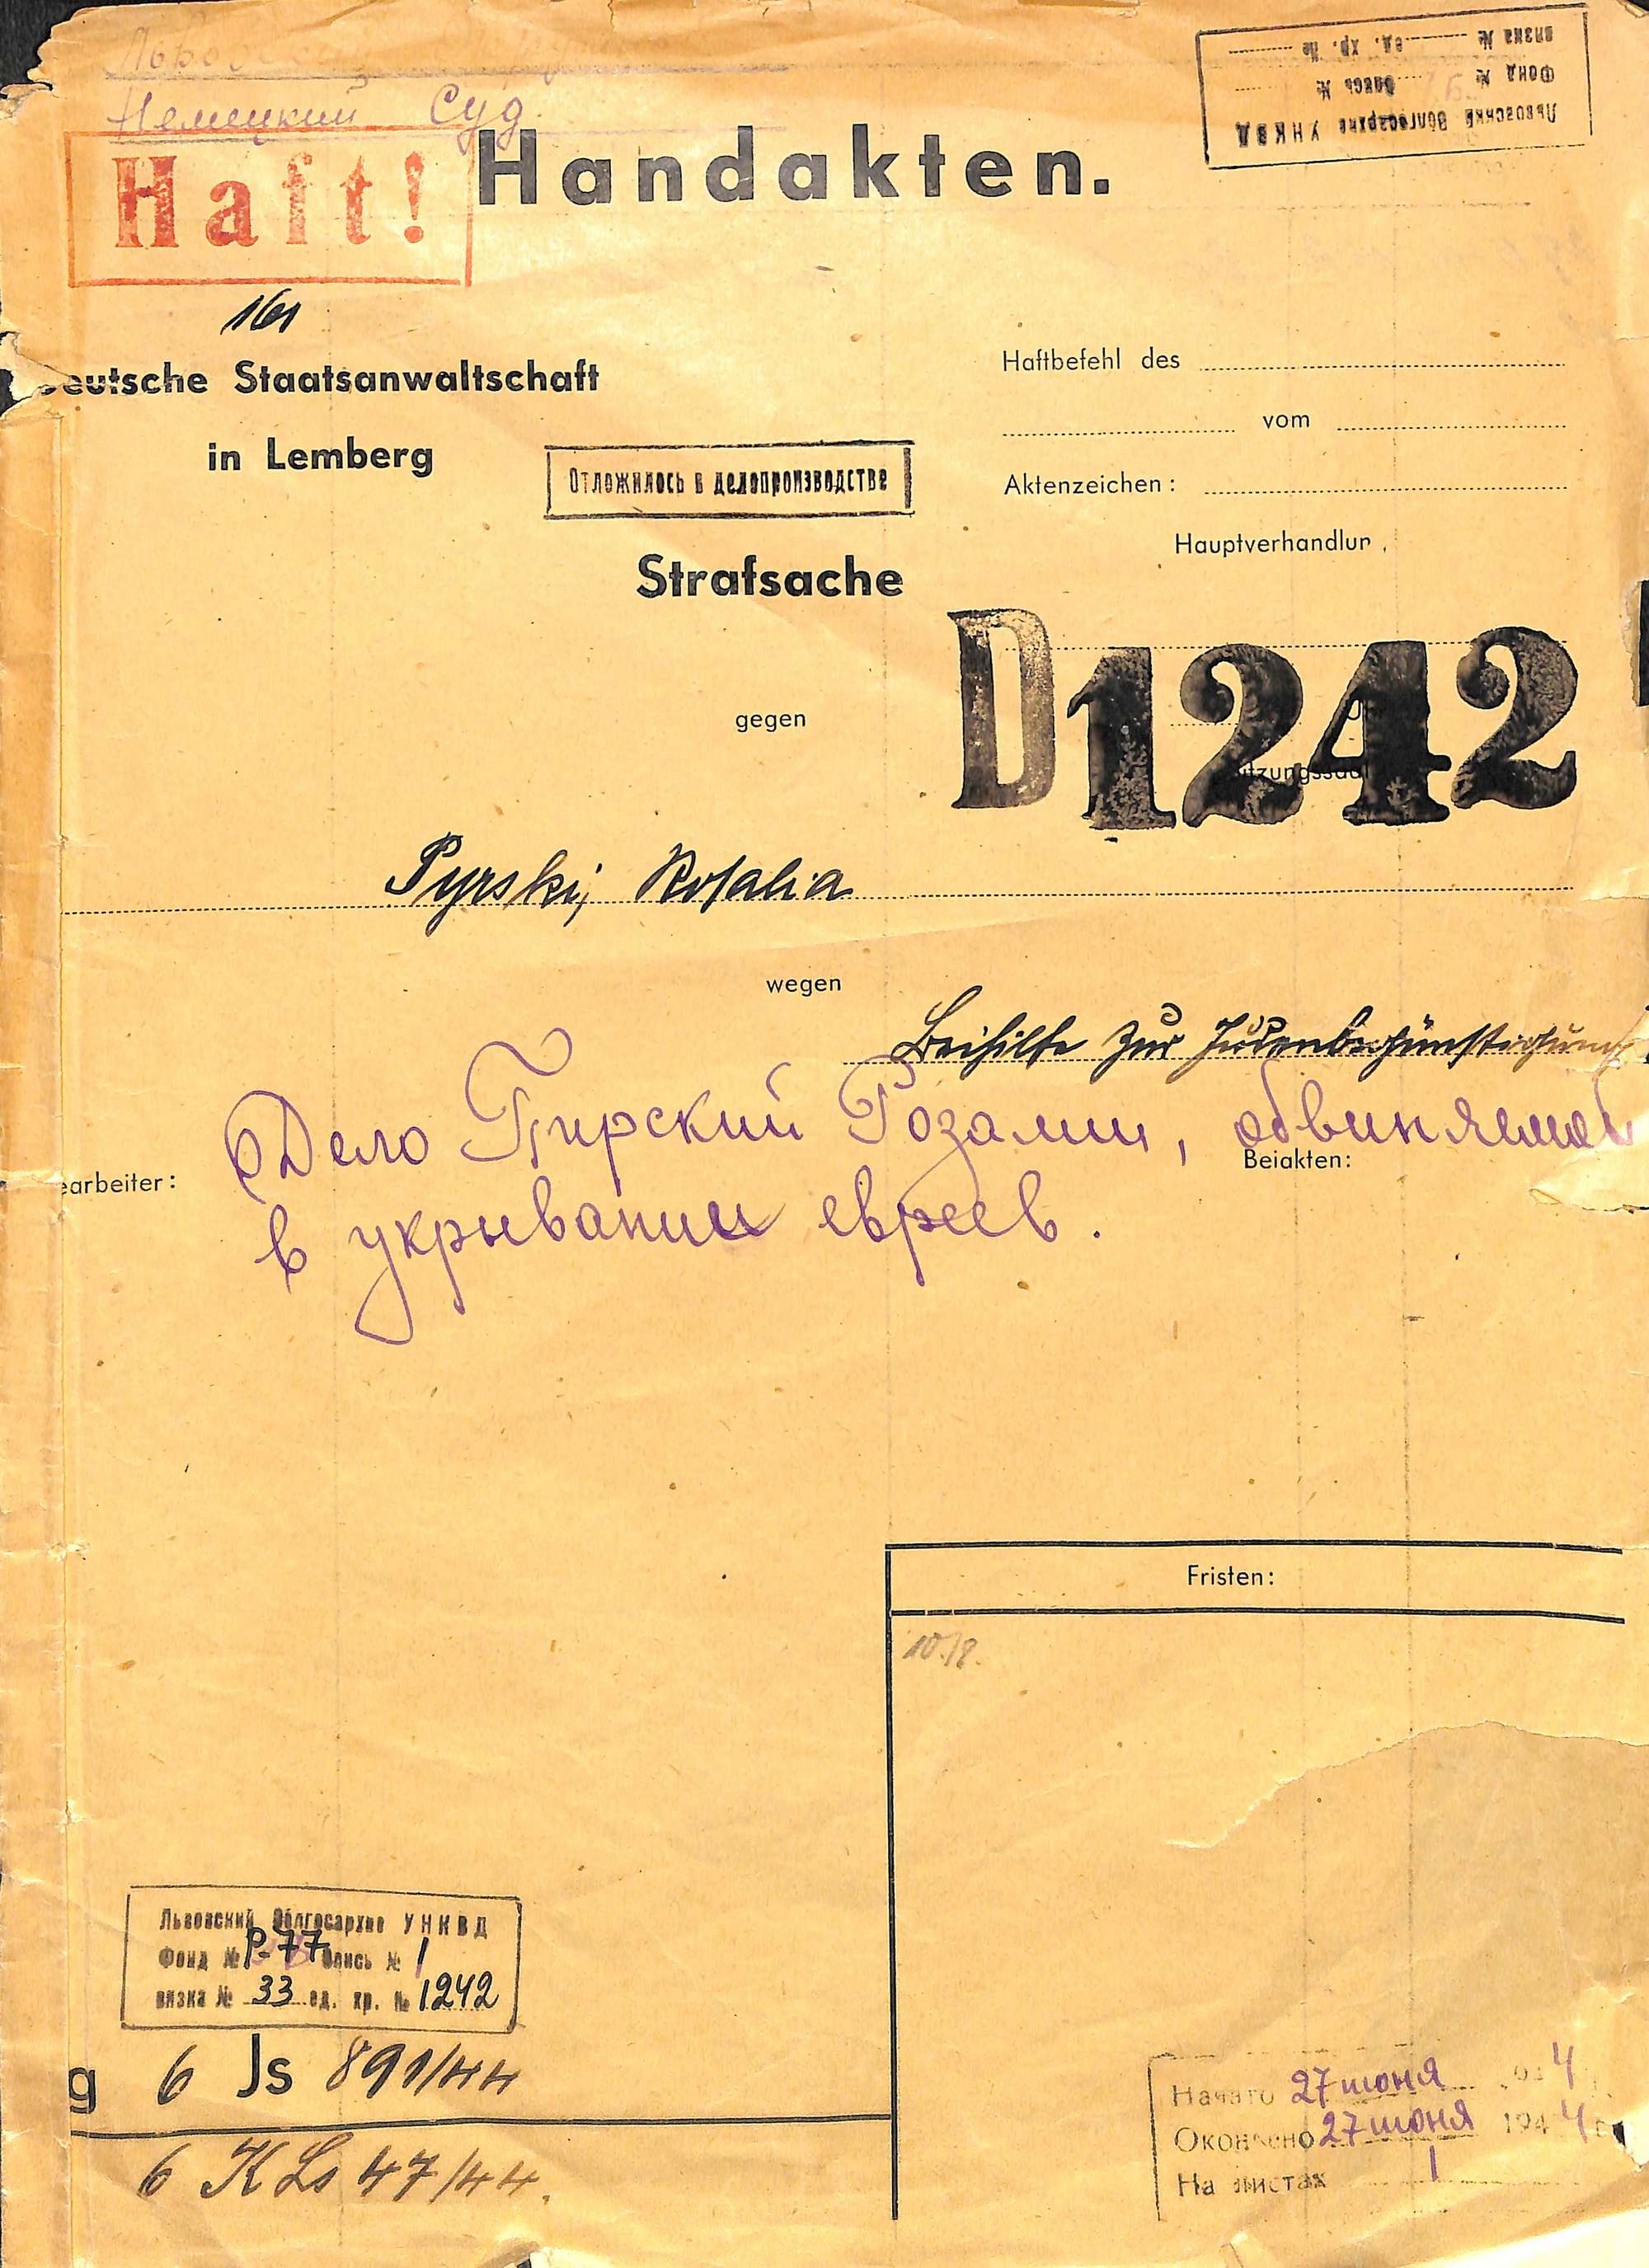 Немецкий Суд
Львовский Облгосархив УНКВД
Фонд № Опись №
вязка № ед. хр. №
Haft!
Handakten.
161
Deutsche Staatsanwaltschaft
in Lemberg
Haftbefehl des
vom
Aktenzeichen:
Отложилось в делопроизводстве
Hauptverhandlun
Strafsache
D1242
gegen
itzungssaal
Pyrski, Rosalia
wegen
Beihilfe zur Judenbegünstigung
Дело Пирский Розалии, обвиняемой
earbeiter:
Beiakten:
в укрывании евреев.
Fristen:
10./8.
Львовский Облгосархив УНКВД
Фонд № Р-77 Опись № 1
вязка № 33 ед. хр. № 1242
g 6 Js 891/44
6 KLs 47/44.
Начато 27 июня 1944
Окончено 27 июня 1944 г
На листах 1